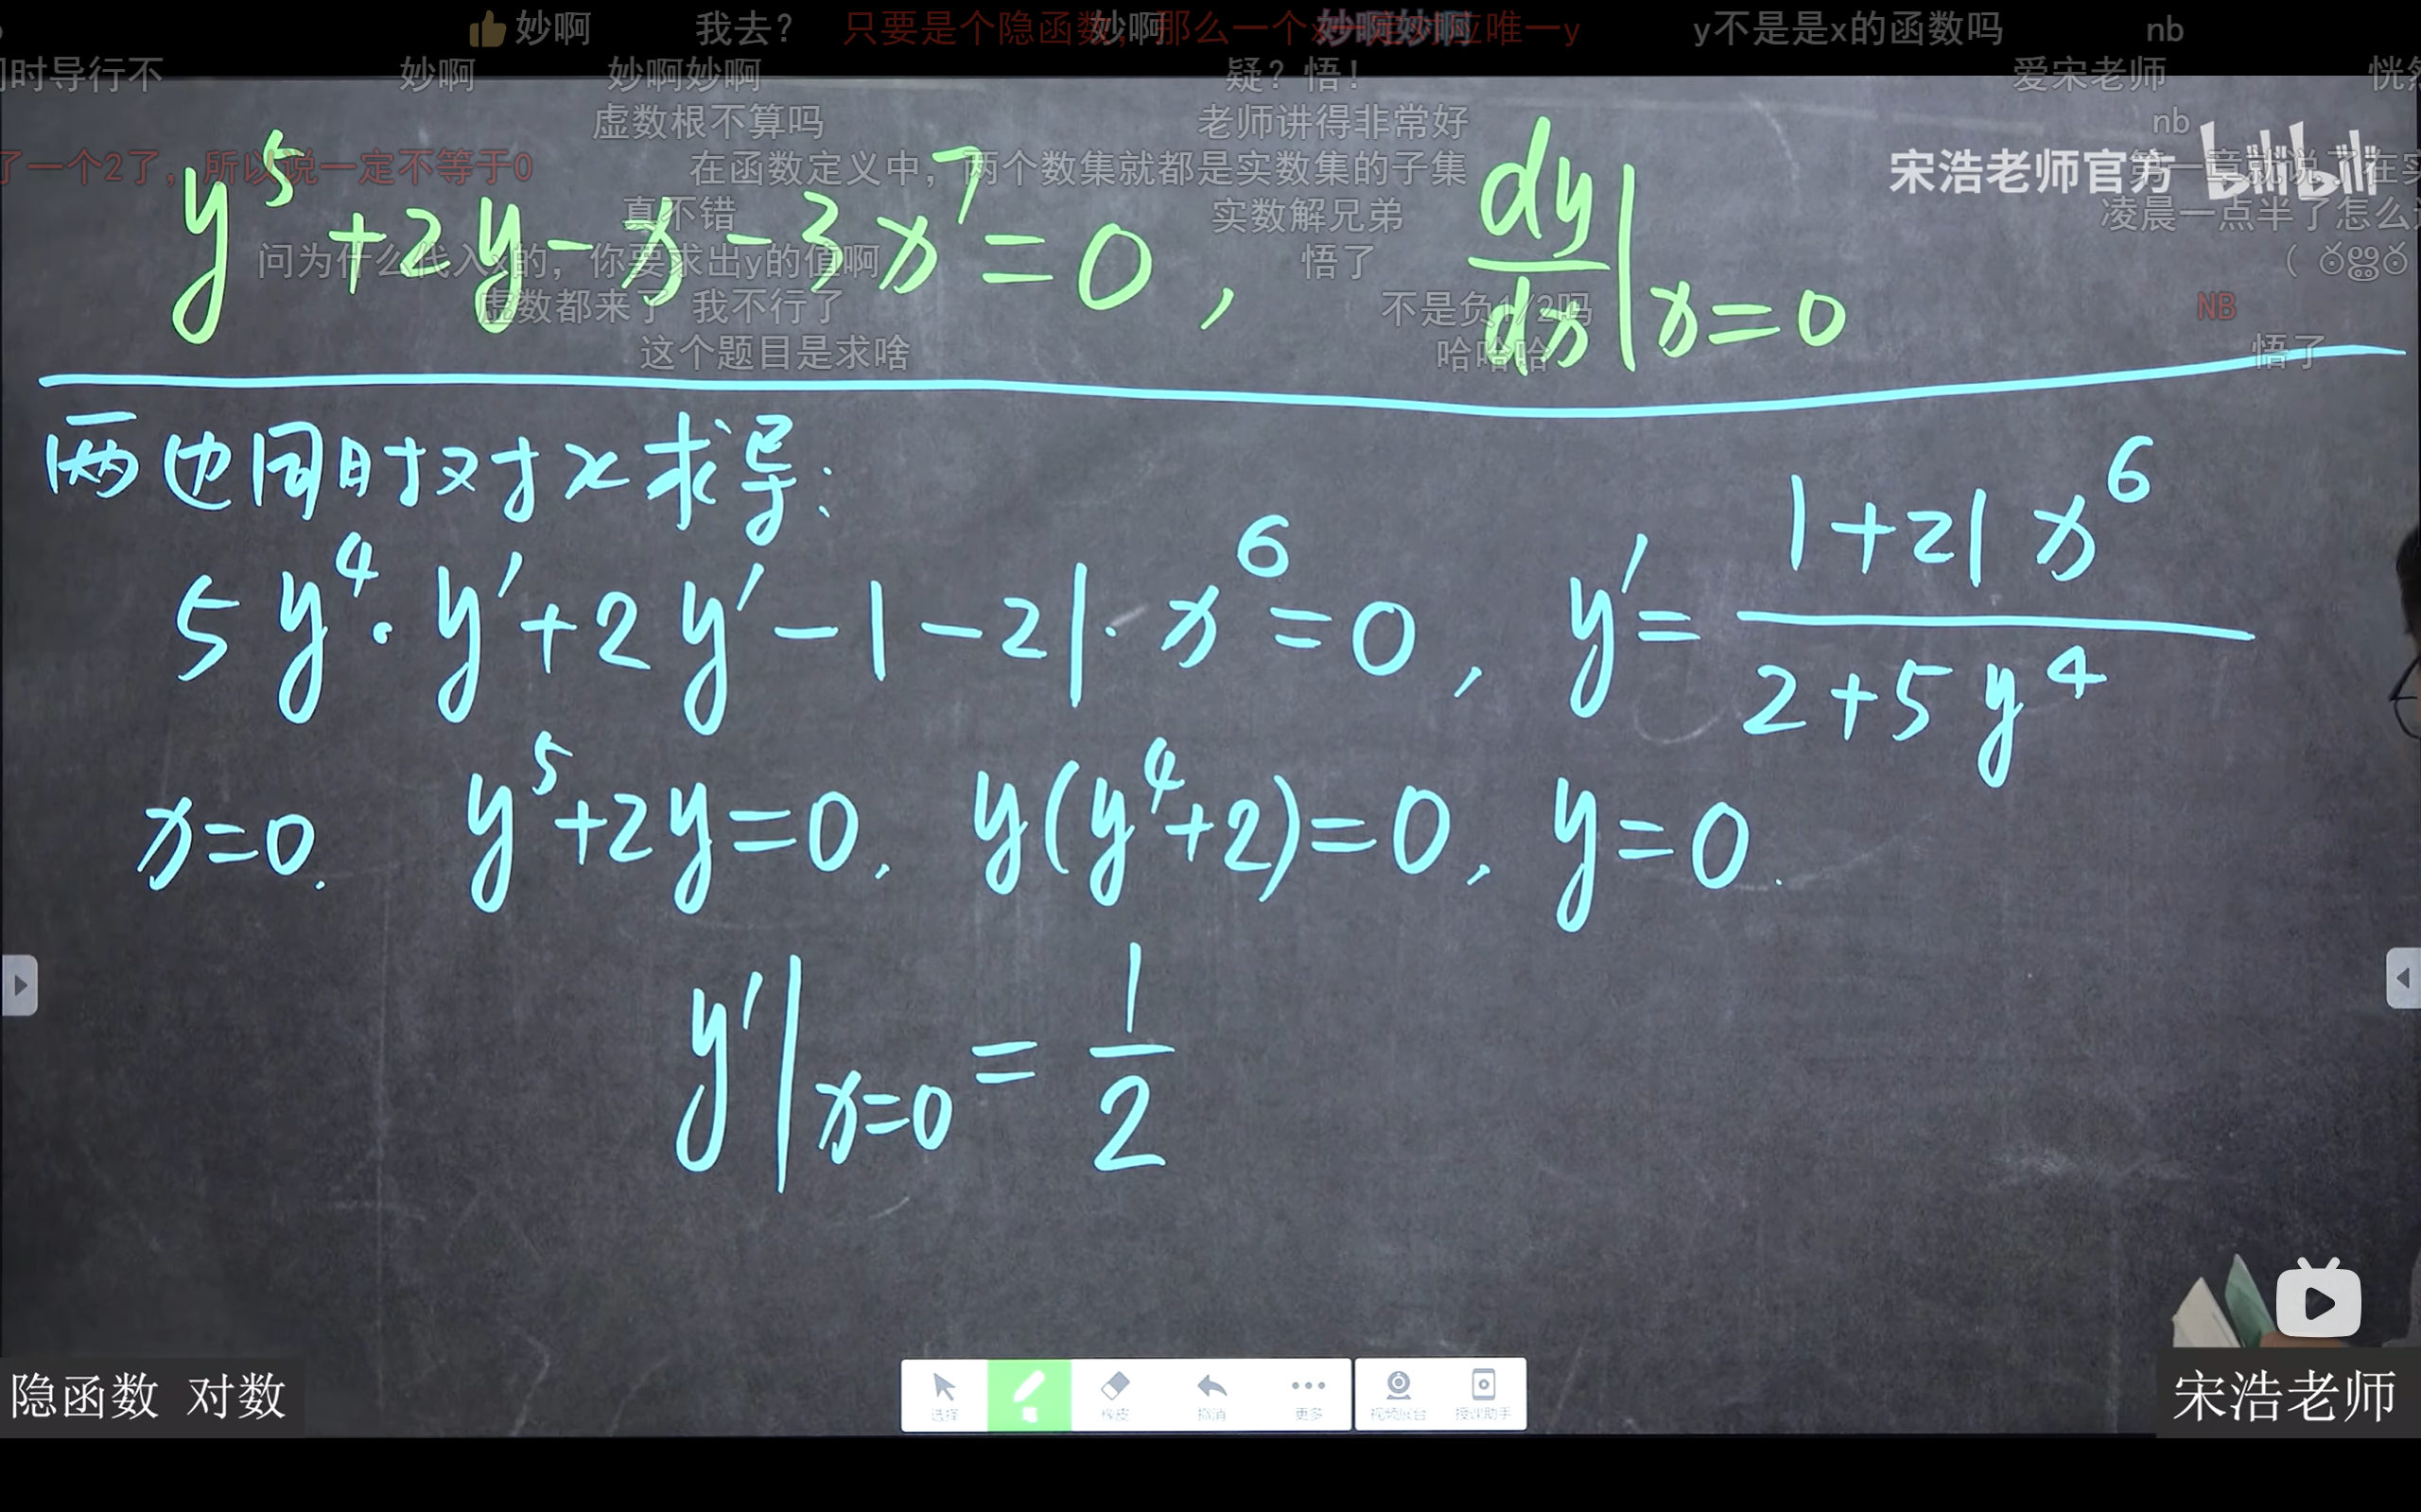 妙啊 我去? 只要是个隐函数,那么一个x一定对应唯一y 妙啊 妙啊妙啊 y不是是x的函数吗 nb
时导行不 妙啊 妙啊妙啊 疑?悟! 爱宋老师
虚数根不算吗 老师讲得非常好 nb
了一个2了,所以说一定不等于0 在函数定义中,两个数集就都是实数集的子集
宋浩老师官方 bilibili
真不错 实数解兄弟 凌晨一点半了怎么
问为什么代入x的,你要求出y的值啊 悟了
虚数都来了 我不行了 不是负1/2吗 NB
这个题目是求啥 哈哈哈 悟了
y⁵+2y-x-3x⁷=0, dy/dx|x=0
两边同时对x求导:
5y⁴·y′+2y′-1-21·x⁶=0, y′=(1+21x⁶)/(2+5y⁴)
x=0. y⁵+2y=0, y(y⁴+2)=0, y=0.
y′|x=0 = 1/2
选择 笔 橡皮 撤消 更多 视频展台 授课助手
隐函数 对数
宋浩老师